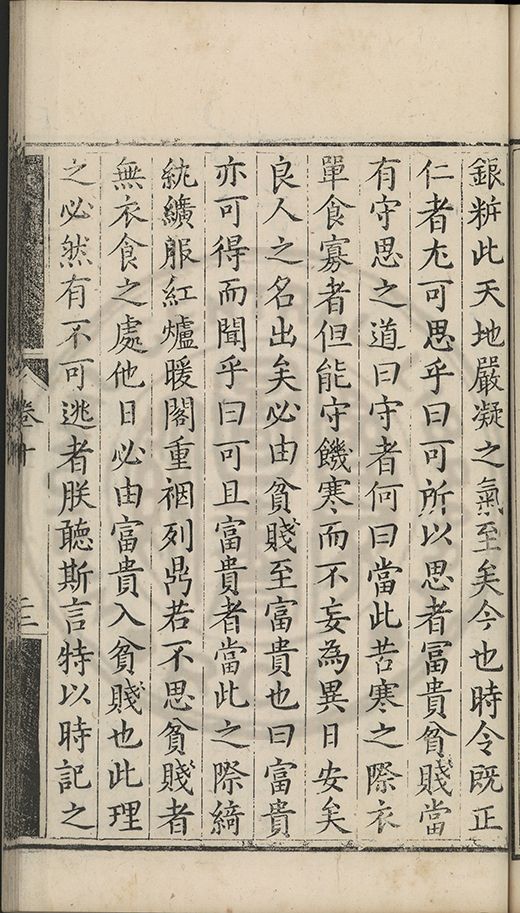 銀粧此天地嚴凝之氣至矣今也時令既正
仁者尤可思乎曰可所以思者冨貴貧賤當
有守思之道曰守者何曰當此苦寒之際衣
單食寡者但能守饑寒而不妄為異日安矣
良人之名出矣必由貧賤至富貴也曰富貴
亦可得而聞乎曰可且富貴者當此之際綺
紈纊服紅爐暖閣重裀列鼎若不思貧賤者
無衣食之處他日必由富貴入貧賤也此理
之必然有不可逃者朕聽斯言特以時記之
卷十
三